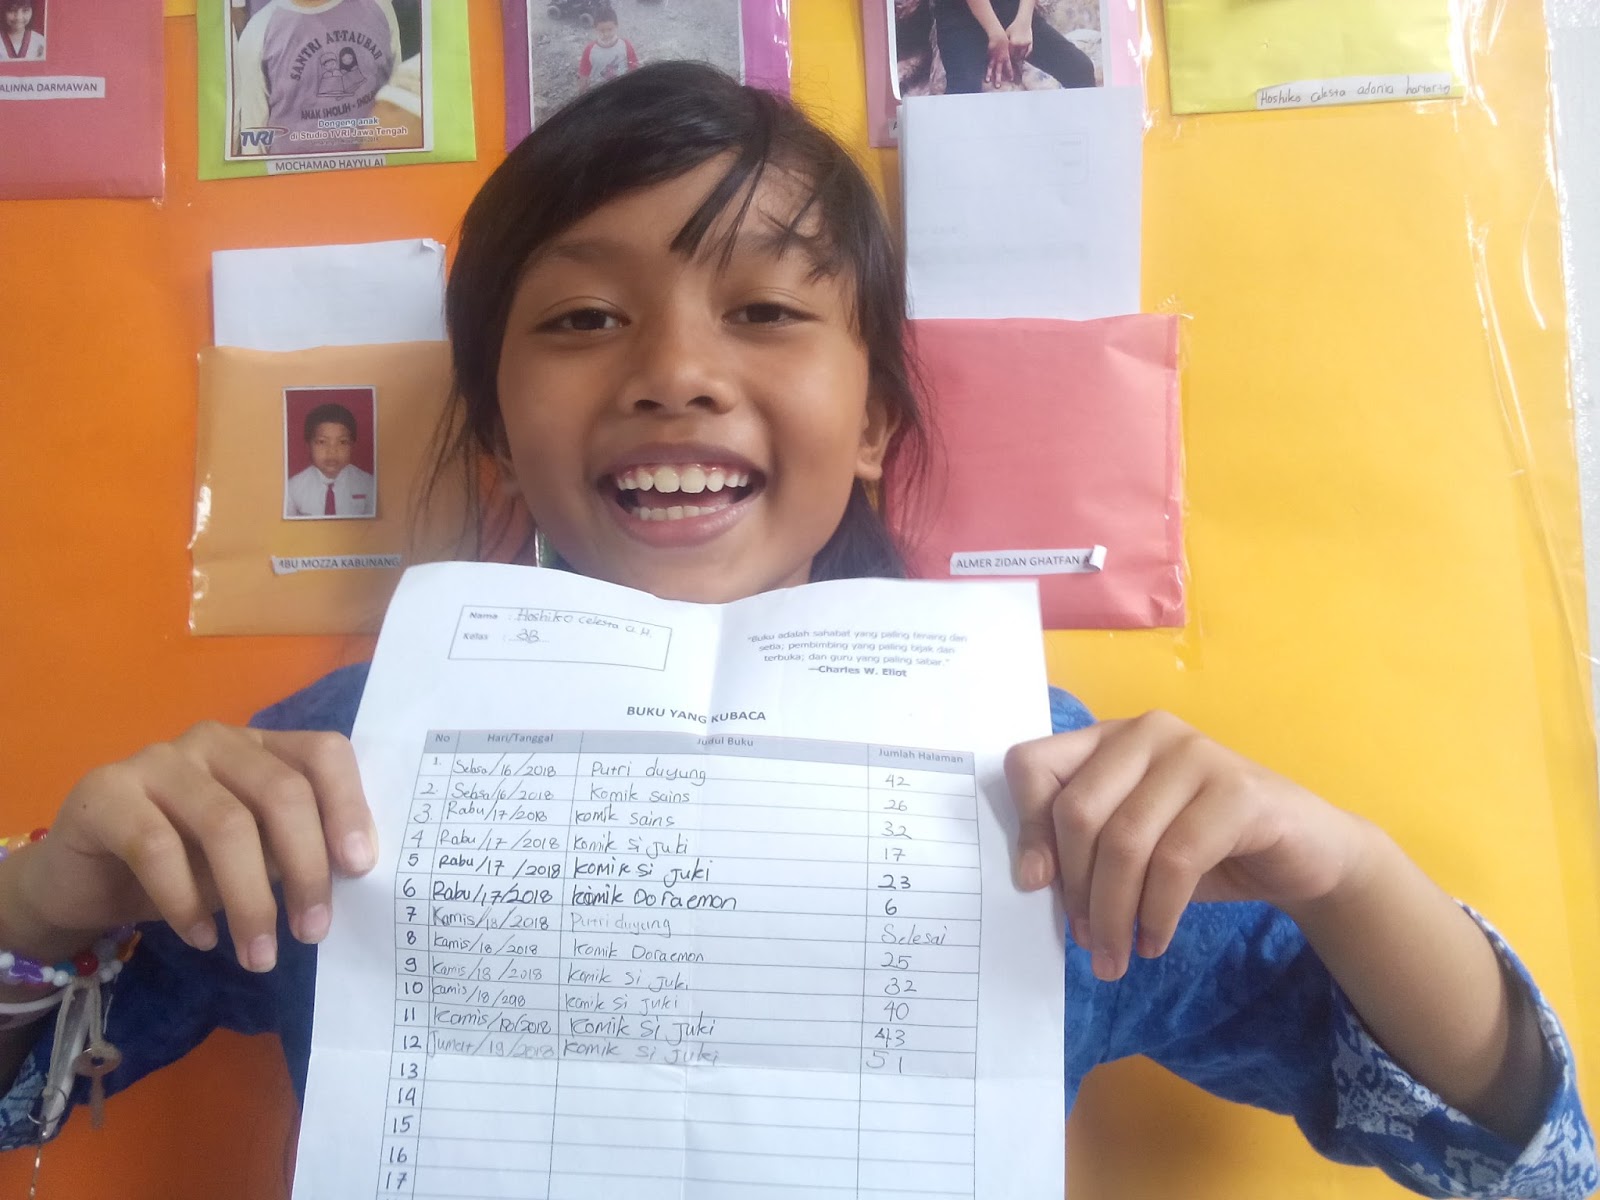 ALINNA DARMAWAN
SANTRI AT-TAUBAH
ANAK SHOLIH
TVRI
Dongeng anak
di Studio TVRI Jawa Tengah
MOCHAMAD HAYYU AL
Hoshiko Celesta adania
ABU MOZZA KABUNANG
ALMER ZIDAN GHATFAN A
Nama : Hoshiko Celesta a. H.
Kelas : 3B
"Buku adalah sahabat yang paling tenang dan
setia; pembimbing yang paling bijak dan
terbuka; dan guru yang paling sabar."
—Charles W. Eliot
BUKU YANG KUBACA
No Hari/Tanggal Judul Buku Jumlah Halaman
1. Selasa/16/2018 Putri duyung 42
2. Selasa/16/2018 Komik sains 26
3. Rabu/17/2018 komik sains 32
4 Rabu/17/2018 komik si juki 17
5 Rabu/17/2018 komik si juki 23
6 Rabu/17/2018 komik Doraemon 6
7 Kamis/18/2018 Putri duyung Selesai
8 Kamis/18/2018 komik Doraemon 25
9 Kamis/18/2018 komik si juki 32
10 kamis/18/298 komik si juki 40
11 Kamis/18/2018 komik si juki 43
12 Jumat/19/2018 komik si juki 51
13
14
15
16
17